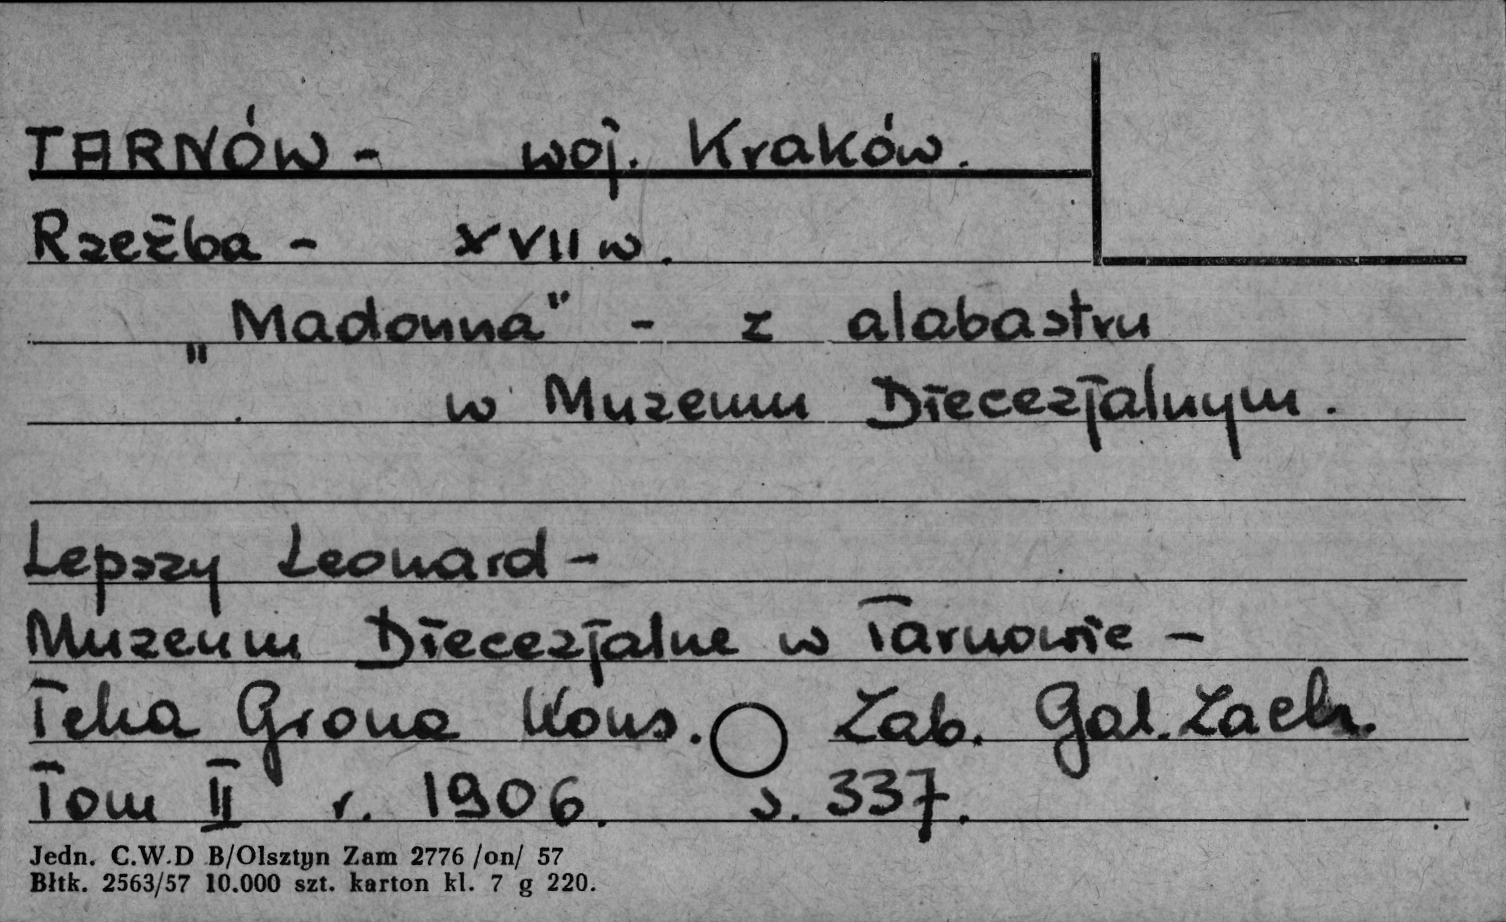 TARNÓW - woj. Kraków.
Rzeźba - XVII w.
„Madonna" - z alabastru
w Muzeum Diecezjalnym.
Lepszy Leonard -
Muzeum Diecezjalne w Tarnowie -
Teka Grona Kons. Zab. Gal. Zach.
Tom II r. 1906. s. 337.
Jedn. C.W.D B/Olsztyn Zam 2776 /on/ 57
Błtk. 2563/57 10.000 szt. karton kl. 7 g 220.